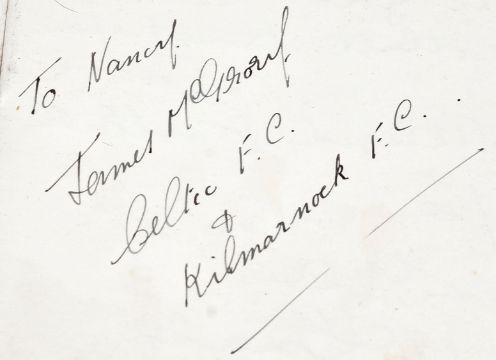 To Nancy.
James McGrory.
Celtic F.C.
&
Kilmarnock F.C.